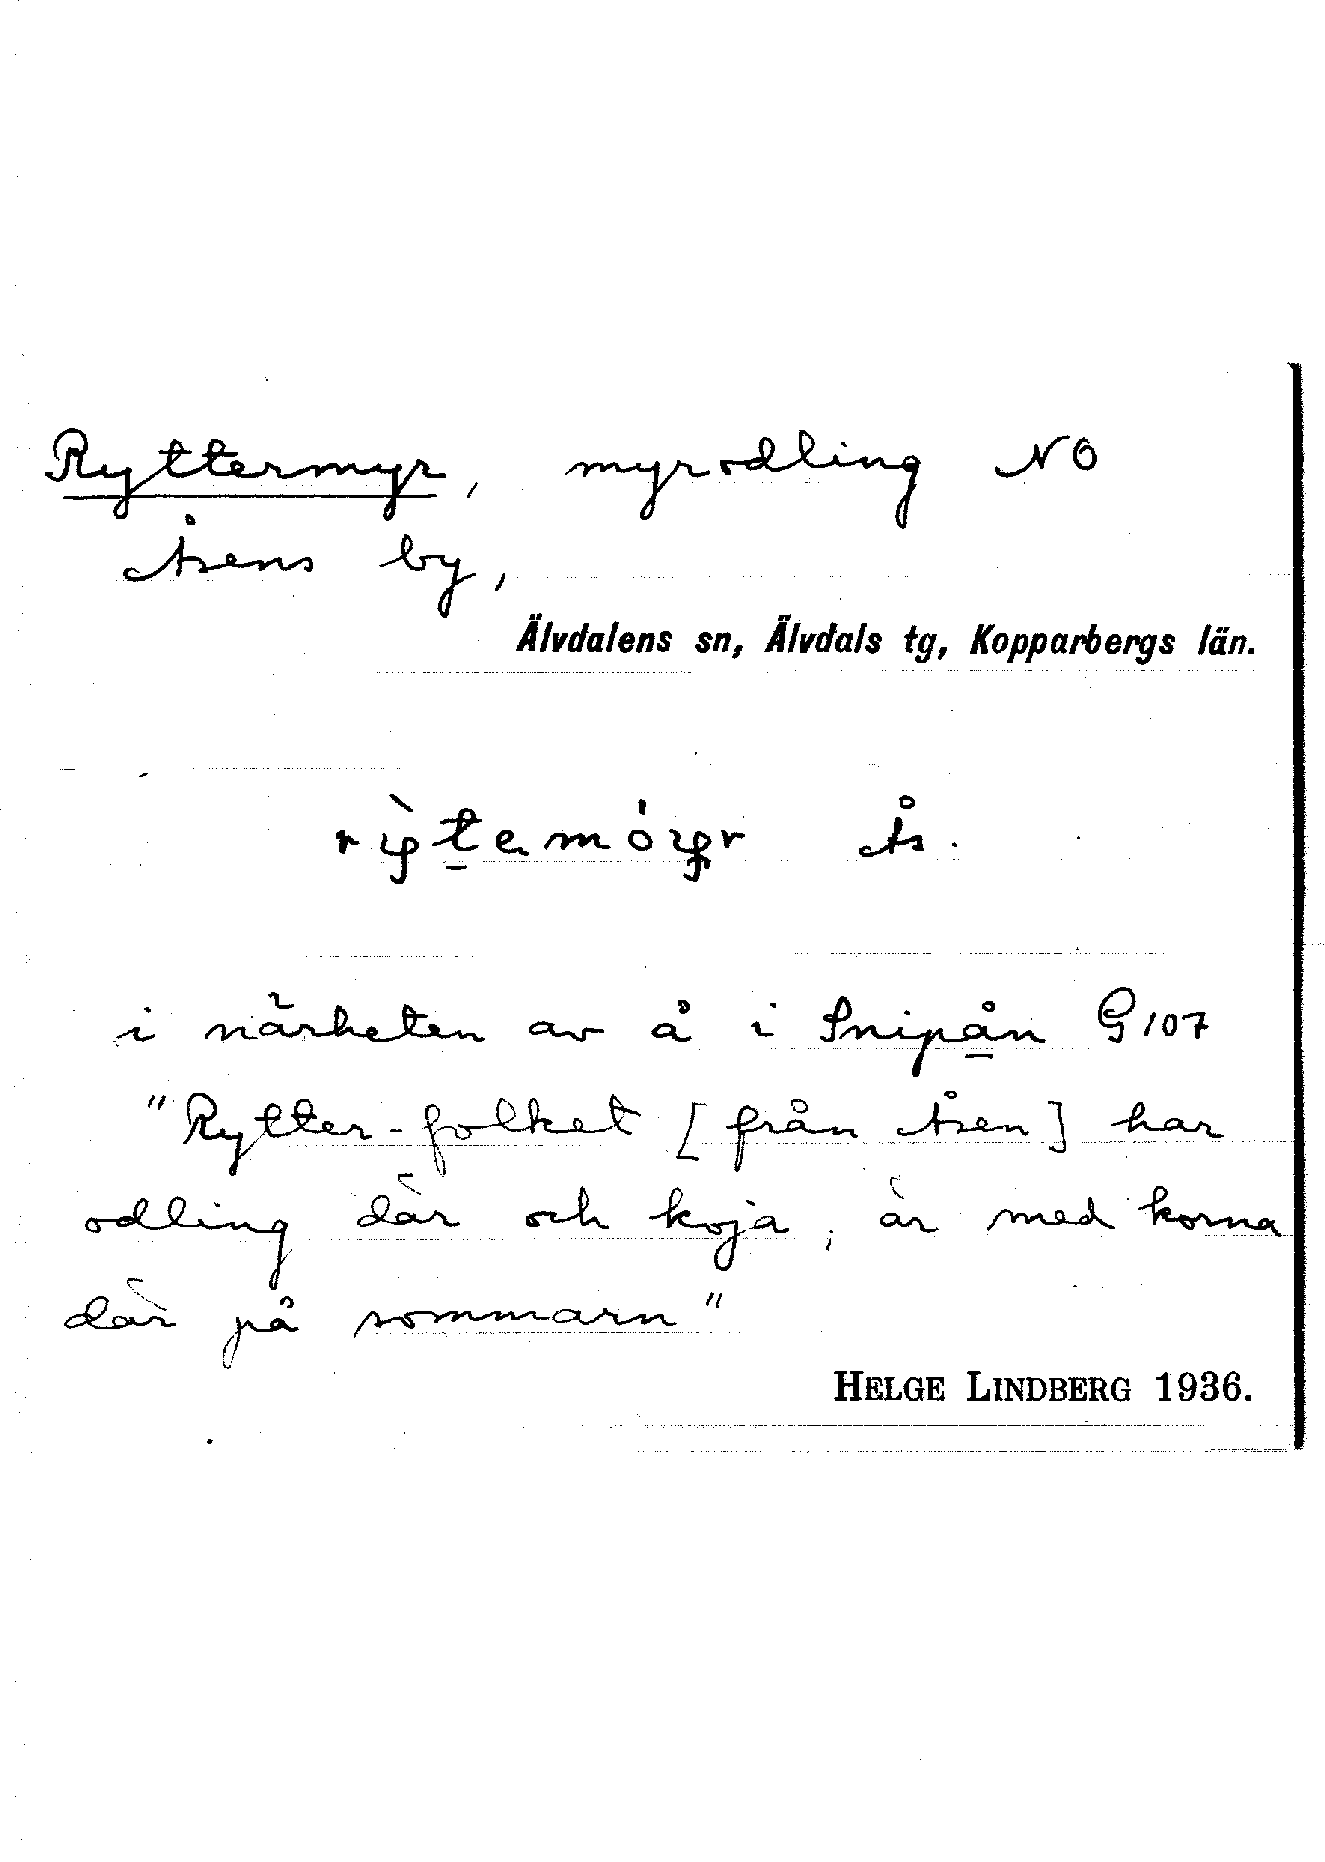 Ryttermyr, myrodling NÖ
Åsens by,
Älvdalens sn, Älvdals tg, Kopparbergs län.
Ås.
i närheten av å i Snipån G107
"Rytter-folket [från Åsen] har
odling där och koja, är med korna
där på sommarn"
HELGE LINDBERG 1936.